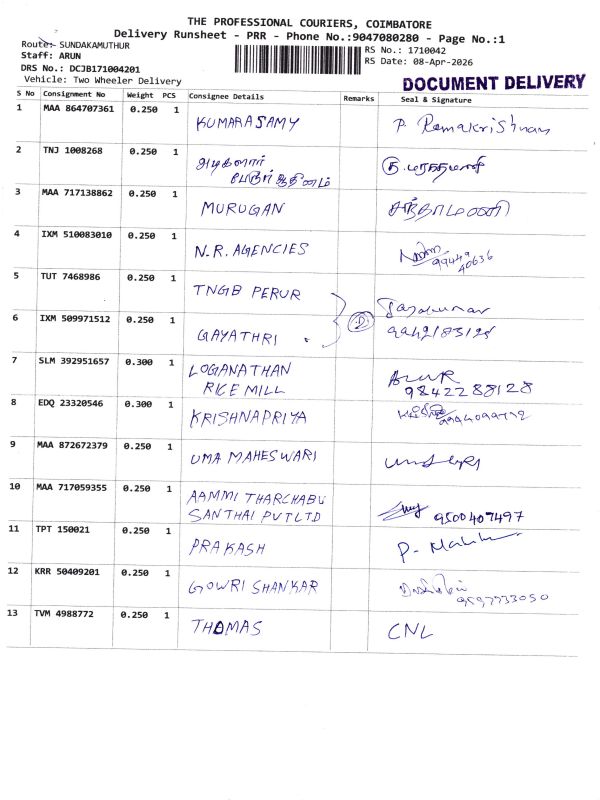 THE PROFESSIONAL COURIERS, COIMBATORE
Delivery Runsheet - PRR - Phone No.:9047080280 - Page No.:1
Route:- SUNDAKAMUTHUR
Staff: ARUN
DRS No.: DCJB171004201
Vehicle: Two Wheeler Delivery
RS No.: 1710042
RS Date: 08-Apr-2026
DOCUMENT DELIVERY
S No Consignment No Weight PCS Consignee Details Remarks Seal & Signature
1 MAA 864707361 0.250 1 KUMARASAMY P. Ramakrishnan
2 TNJ 1008268 0.250 1 அடிகளார்
பேரூர் ஆதினம்
3 MAA 717138862 0.250 1 MURUGAN சிந்தாமணி
4 IXM 510083010 0.250 1 N.R. AGENCIES 99449
40636
5 TUT 7468986 0.250 1 TNGB PERUR Jayakumar
6 IXM 509971512 0.250 1 GAYATHRI 9942183128
7 SLM 392951657 0.300 1 LOGANATHAN
RICE MILL 9842288128
8 EDQ 23320546 0.300 1 KRISHNAPRIYA
9 MAA 872672379 0.250 1 UMA MAHESWARI
10 MAA 717059355 0.250 1 AAMMI THARCHABU
SANTHAI PVT LTD 9500407497
11 TPT 150021 0.250 1 PRAKASH P.
12 KRR 50409201 0.250 1 GOWRI SHANKAR 9597733050
13 TVM 4988772 0.250 1 THOMAS CNL